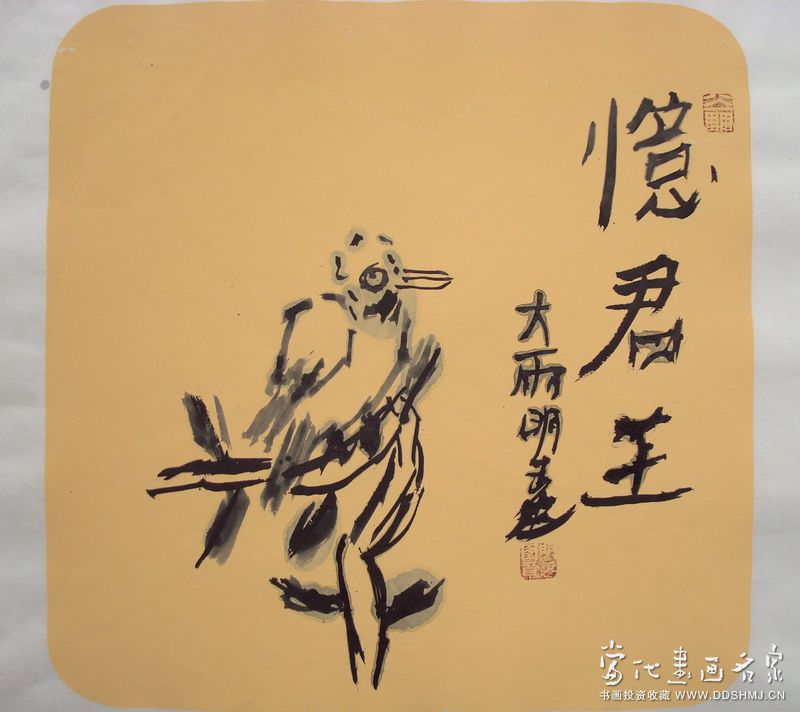 憶君王
大雨明
當代書画名家
书画投资收藏 WWW.DDSHMJ.CN